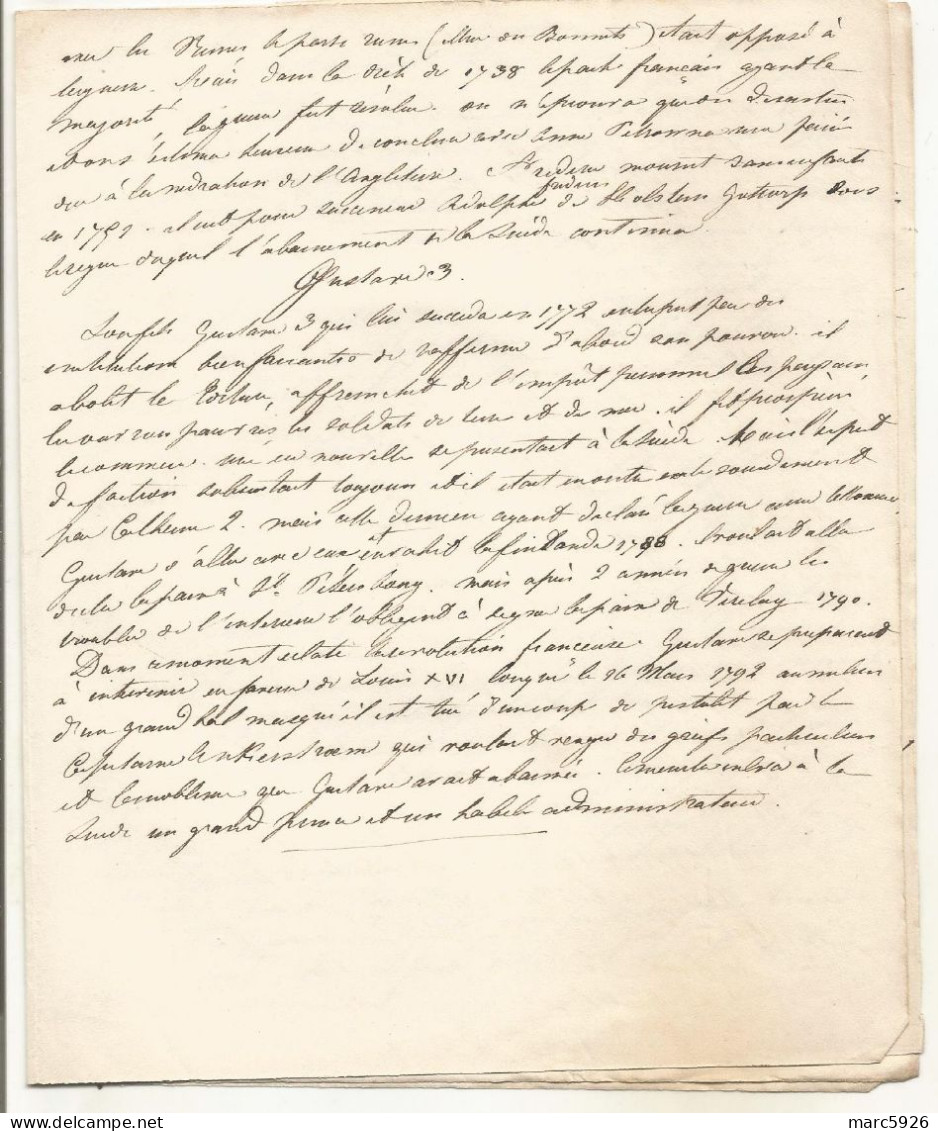 les Russes le parti russe (celui des Bonnets) était opposé à
la guerre. Mais dans la diète de 1738 le parti français ayant la
majorité la guerre fut résolue. on n'éprouva que des désastres
et on s'estima heureux de conclure avec une paix
due à la médiation de l'Angleterre. Frédéric mourut sans enfants
en 1751. il eut pour successeur Adolphe frédéric de Holstein Gottorp sous
le règne duquel l'abaissement de la Suède continua.
Gustave 3.
Son fils Gustave 3 qui lui succéda en 1772 entreprit par des
institutions bienfaisantes de raffermir d'abord son pouvoir. il
abolit le affranchit de l'impôt personnel les paysans
les soldats de terre et de mer. il fit prospérer
le commerce. une ère nouvelle se présentait à la Suède. Mais l'esprit
de faction subsistait toujours et il était excité sourdement
par Catherine 2. mais cette dernière ayant déclaré la guerre
Gustave s'allia avec eux et envahit la finlande 1788. il voulait aller
dicter la paix à St Pétersbourg. mais après 2 années de guerre les
troubles de l'intérieur l'obligent à signer la paix de 1790.
Dans ce moment éclate la révolution française. Gustave se préparait
à intervenir en faveur de Louis XVI lorsque le 16 Mars 1792 au milieu
d'un grand bal masqué il est tué d'un coup de pistolet par le
Capitaine Ankerstroem qui voulait venger des griefs particuliers
et la noblesse que Gustave avait abaissée. Ce meurtre enleva à la
Suède un grand prince et un habile administrateur.
marc5926